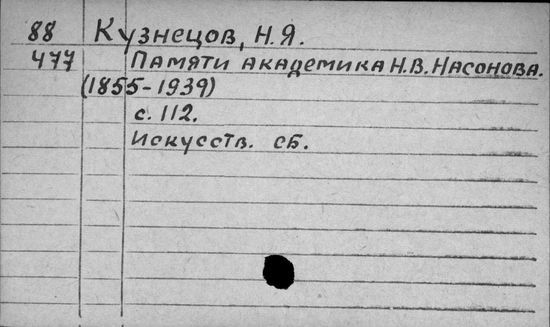 88 Кузнецов, Н.Я.
477 Памяти академика Н.В. Насонова.
(1855-1939)
с. 112.
Искусств. сб.